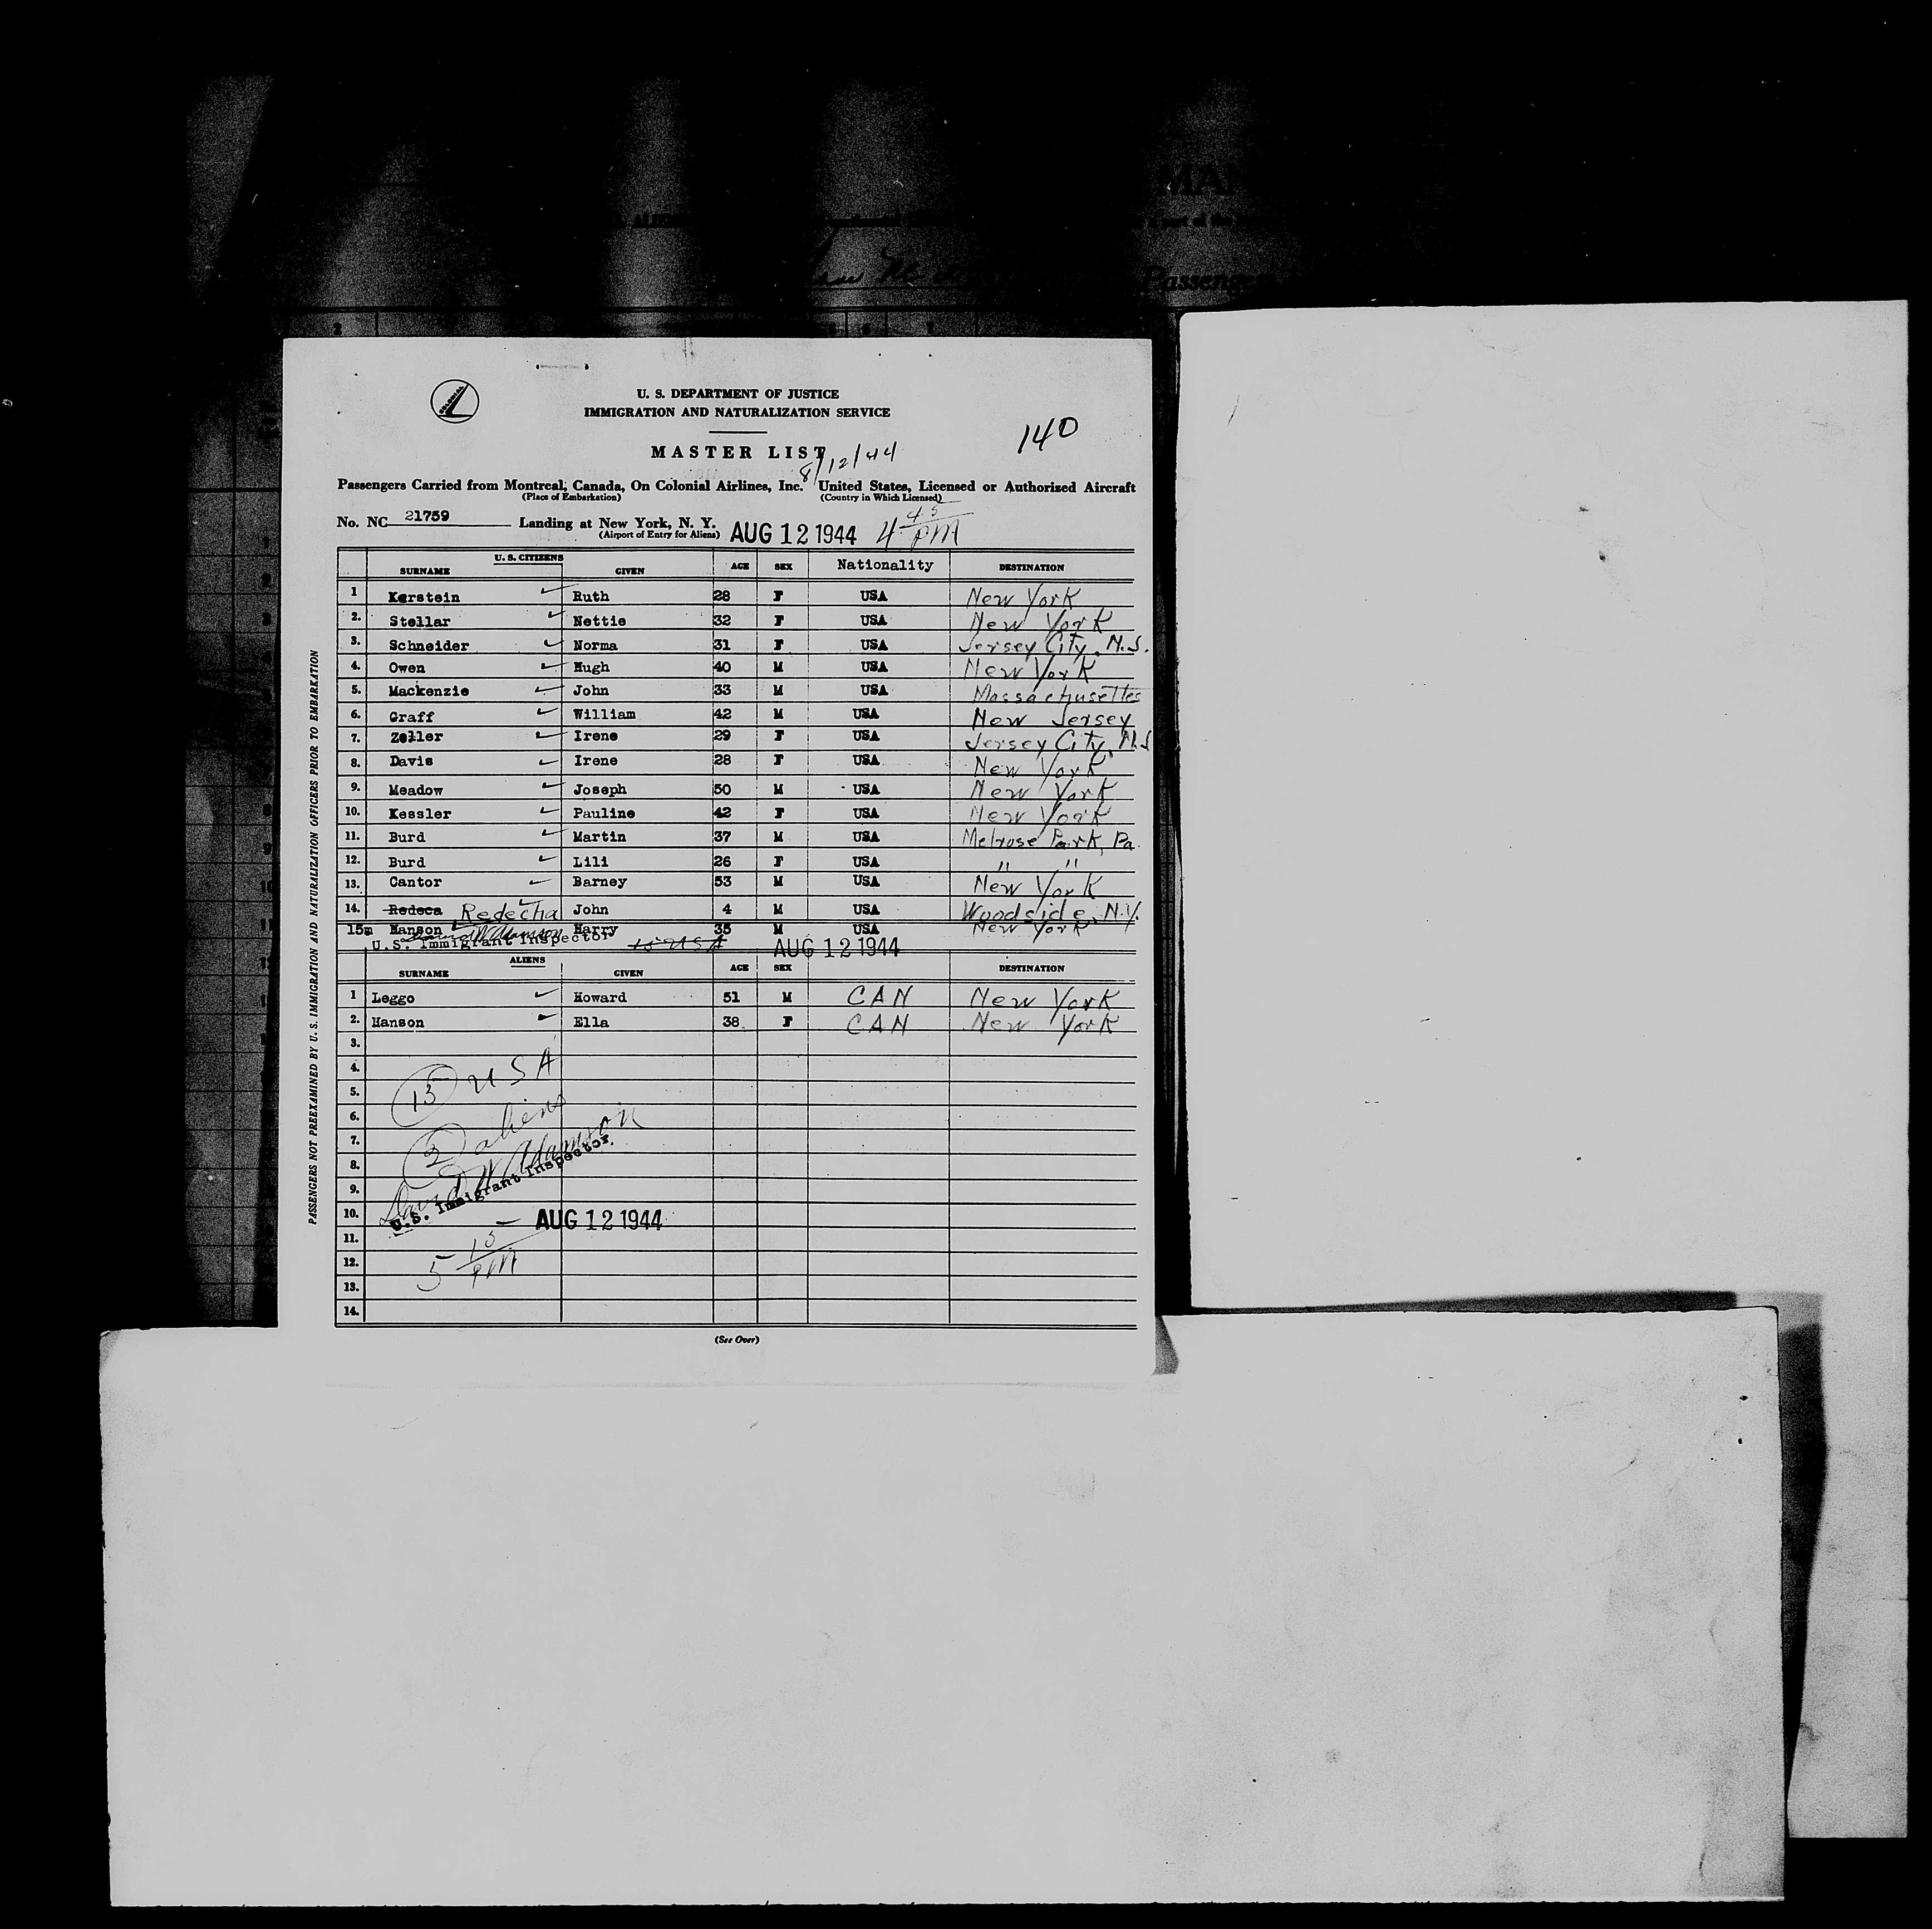 MAN
Passenger
COLONIAL
U. S. DEPARTMENT OF JUSTICE
IMMIGRATION AND NATURALIZATION SERVICE
140
MASTER LIST
8/12/44
Passengers Carried from Montreal, Canada, On Colonial Airlines, Inc. United States, Licensed or Authorized Aircraft
(Place of Embarkation) (Country in Which Licensed)
No. NC 21759 Landing at New York, N. Y. AUG 12 1944 4 45 PM
(Airport of Entry for Aliens)
U. S. CITIZENS
SURNAME GIVEN AGE SEX Nationality DESTINATION
1 Kerstein Ruth 28 F USA New York
2. Stellar Nettie 32 F USA New York
3. Schneider Norma 31 F USA Jersey City, N.J.
4. Owen Hugh 40 M USA New York
5. Mackenzie John 33 M USA Massachusettes
6. Graff William 42 M USA New Jersey
7. Zeller Irene 29 F USA Jersey City, N.J
8. Davis Irene 28 F USA New York
9. Meadow Joseph 50 M USA New York
10. Kessler Pauline 42 F USA New York
11. Burd Martin 37 M USA Melrose Park, Pa.
12. Burd Lili 26 F USA " "
13. Cantor Barney 53 M USA New York
14. Redeca Redecha John 4 M USA Woodside, N.Y.
15m Hanson Harry 35 M USA New York
David W Adamson
U.S. Immigrant Inspector 15 USA AUG 12 1944
ALIENS
SURNAME GIVEN AGE SEX DESTINATION
1 Leggo Howard 51 M CAN New York
2. Hanson Ella 38 F CAN New York
3.
4.
15 USA
5.
6.
2 aliens
7.
8.
David W Adamson
9.
U.S. Immigrant Inspector.
10.
AUG 12 1944
11.
12.
5 15 PM
13.
14.
(See Over)
PASSENGERS NOT PREEXAMINED BY U. S. IMMIGRATION AND NATURALIZATION OFFICERS PRIOR TO EMBARKATION